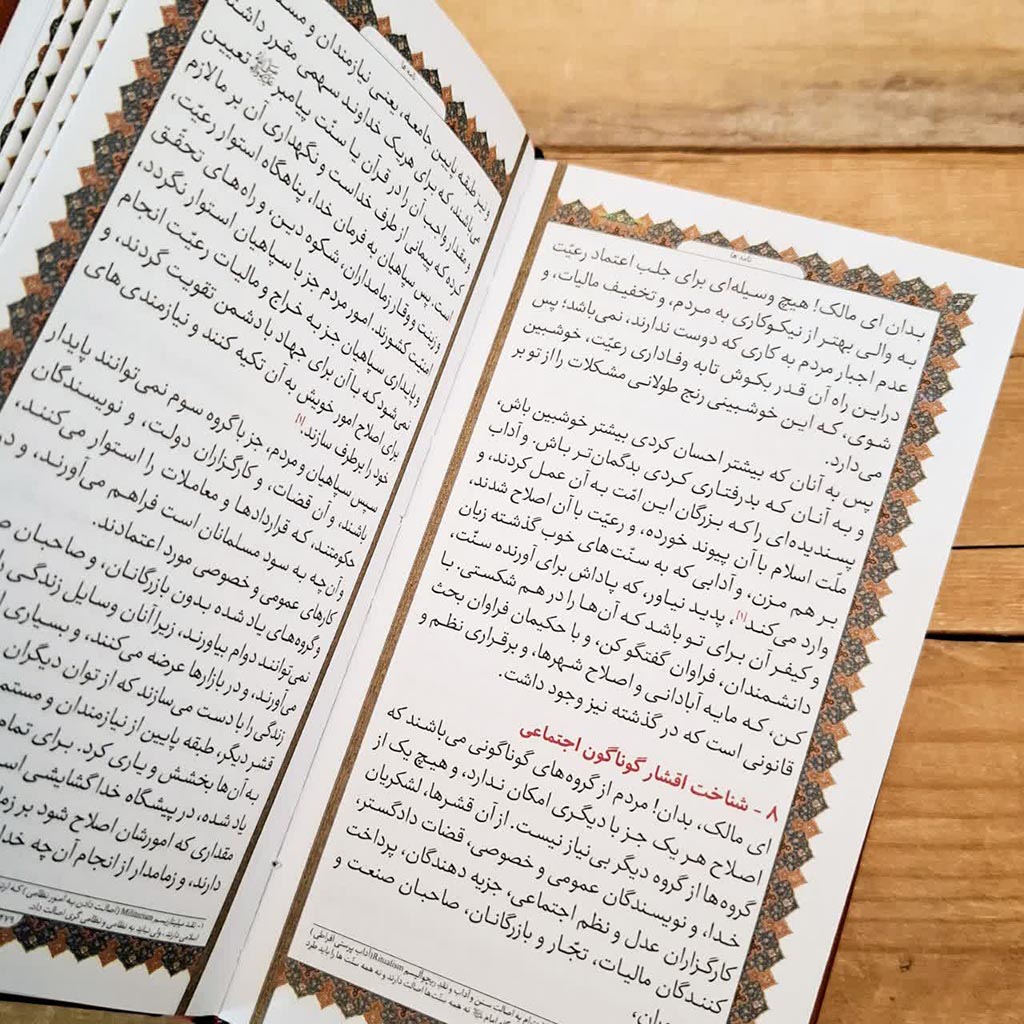 نامه ها
بدان ای مالک! هیچ وسیله‌ای برای جلب اعتماد رعیّت
به والی بهتر از نیکوکاری به مردم، و تخفیف مالیات، و
عدم اجبار مردم به کاری که دوست ندارند، نمی‌باشد؛ پس
در این راه آن قدر بکوش تا به وفاداری رعیّت، خوشبین
شوی، که این خوشبینی رنج طولانی مشکلات را از تو بر
می‌دارد.
پس به آنان که بیشتر احسان کردی بیشتر خوشبین باش،
و به آنان که بدرفتاری کردی بدگمان‌تر باش. و آداب
پسندیده‌ای را که بزرگان این امّت به آن عمل کردند، و
ملّت اسلام با آن پیوند خورده، و رعیّت با آن اصلاح شدند،
بر هم مزن، و آدابی که به سنّت‌های خوب گذشته زیان
وارد می‌کند[۱]، پدید نیاور، که پاداش برای آورنده سنّت،
و کیفر آن برای تو باشد که آن‌ها را در هم شکستی. با
دانشمندان، فراوان گفتگو کن، و با حکیمان فراوان بحث
کن، که مایه آبادانی و اصلاح شهرها، و برقراری نظم و
قانونی است که در گذشته نیز وجود داشت.
۸ - شناخت اقشار گوناگون اجتماعی
ای مالک، بدان! مردم از گروه‌های گوناگونی می‌باشند که
اصلاح هر یک جز با دیگری امکان ندارد، و هیچ یک از
گروه‌ها از گروه دیگر بی‌نیاز نیست. از آن قشرها، لشکریان
خدا، و نویسندگان عمومی و خصوصی، قضات دادگستر،
کارگزاران عدل و نظم اجتماعی، جزیه دهندگان، پرداخت
کنندگان مالیات، تجّار و بازرگانان، صاحبان صنعت و
به اصالت سنن و آداب و نقد ریچوالیسم Ritualism (آداب پرستی افراطی)
نه همه سنّت ها اصالت دارند و نه همه سنّت ها را باید طرد
نامه ها
و نیز طبقه پایین جامعه، یعنی نیازمندان و
می‌باشند، که برای هر یک خداوند سهمی مقرر داشته
و مقدار واجب آن را در قرآن یا سنّت پیامبر ﷺ تعیین
کرده که پیمانی از طرف خداست و نگهداری آن بر ما لازم
است. پس سپاهیان به فرمان خدا، پناهگاه استوار رعیّت،
و زینت و وقار زمامداران، شکوه دین، و راه‌های تحقّق
امنیّت کشورند. امور مردم جز با سپاهیان استوار نگردد،
و پایداری سپاهیان جز به خراج و مالیات رعیّت انجام
نمی‌شود که با آن برای جهاد با دشمن تقویت گردند، و
برای اصلاح امور خویش به آن تکیه کنند و نیازمندی‌های
خود را برطرف سازند.[۱]
سپس سپاهیان و مردم، جز با گروه سوم نمی‌توانند پایدار
باشند، و آن قضات، و کارگزاران دولت، و نویسندگان
حکومتند، که قراردادها و معاملات را استوار می‌کنند،
و آن چه به سود مسلمانان است فراهم می‌آورند، و در
کارهای عمومی و خصوصی مورد اعتمادند.
و گروه‌های یاد شده بدون بازرگانان، و صاحبان
نمی‌توانند دوام بیاورند، زیرا آنان وسایل زندگی را
می‌آورند، و در بازارها عرضه می‌کنند، و بسیاری
زندگی را با دست می‌سازند که از توان دیگران
قشر دیگر، طبقه پایین از نیازمندان و
به آن‌ها بخشش و یاری کرد. برای تمام
یاد شده، در پیشگاه خدا گشایشی
مقداری که امورشان اصلاح شود بر
دارند، و زمامدار از انجام آن چه خدا
۱- نقد میلیتاریسم Militarism (اصالت دادن به امور نظامی) که
اسلامی دارند، ولی نباید به نظامی و نظامی گری اصالت داد.